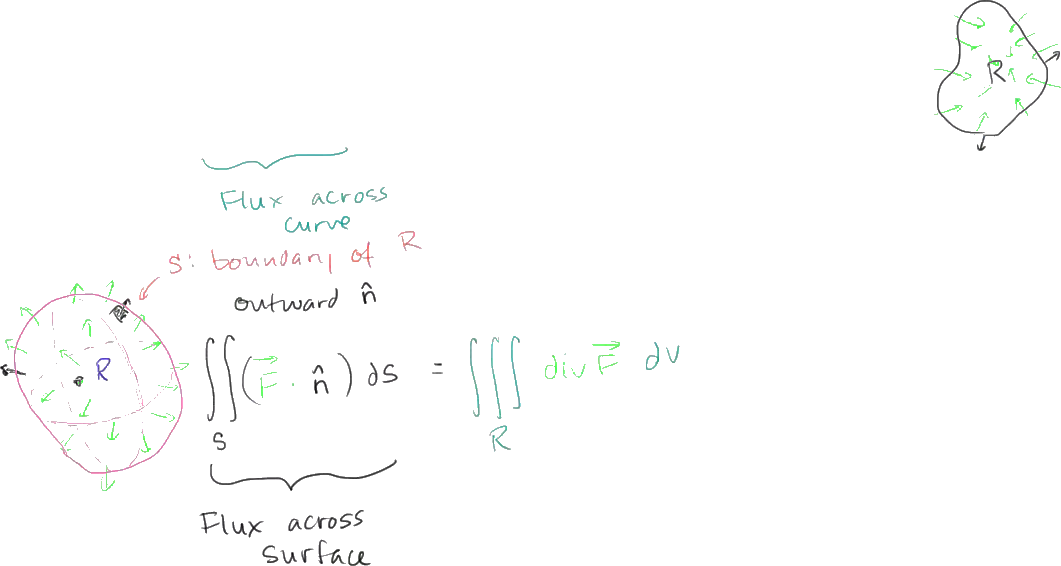 R
Flux across
curve
S: boundary of R
outward n̂
R
∬_S (F⃗ · n̂) dS = ∭_R div F⃗ dV
Flux across
surface